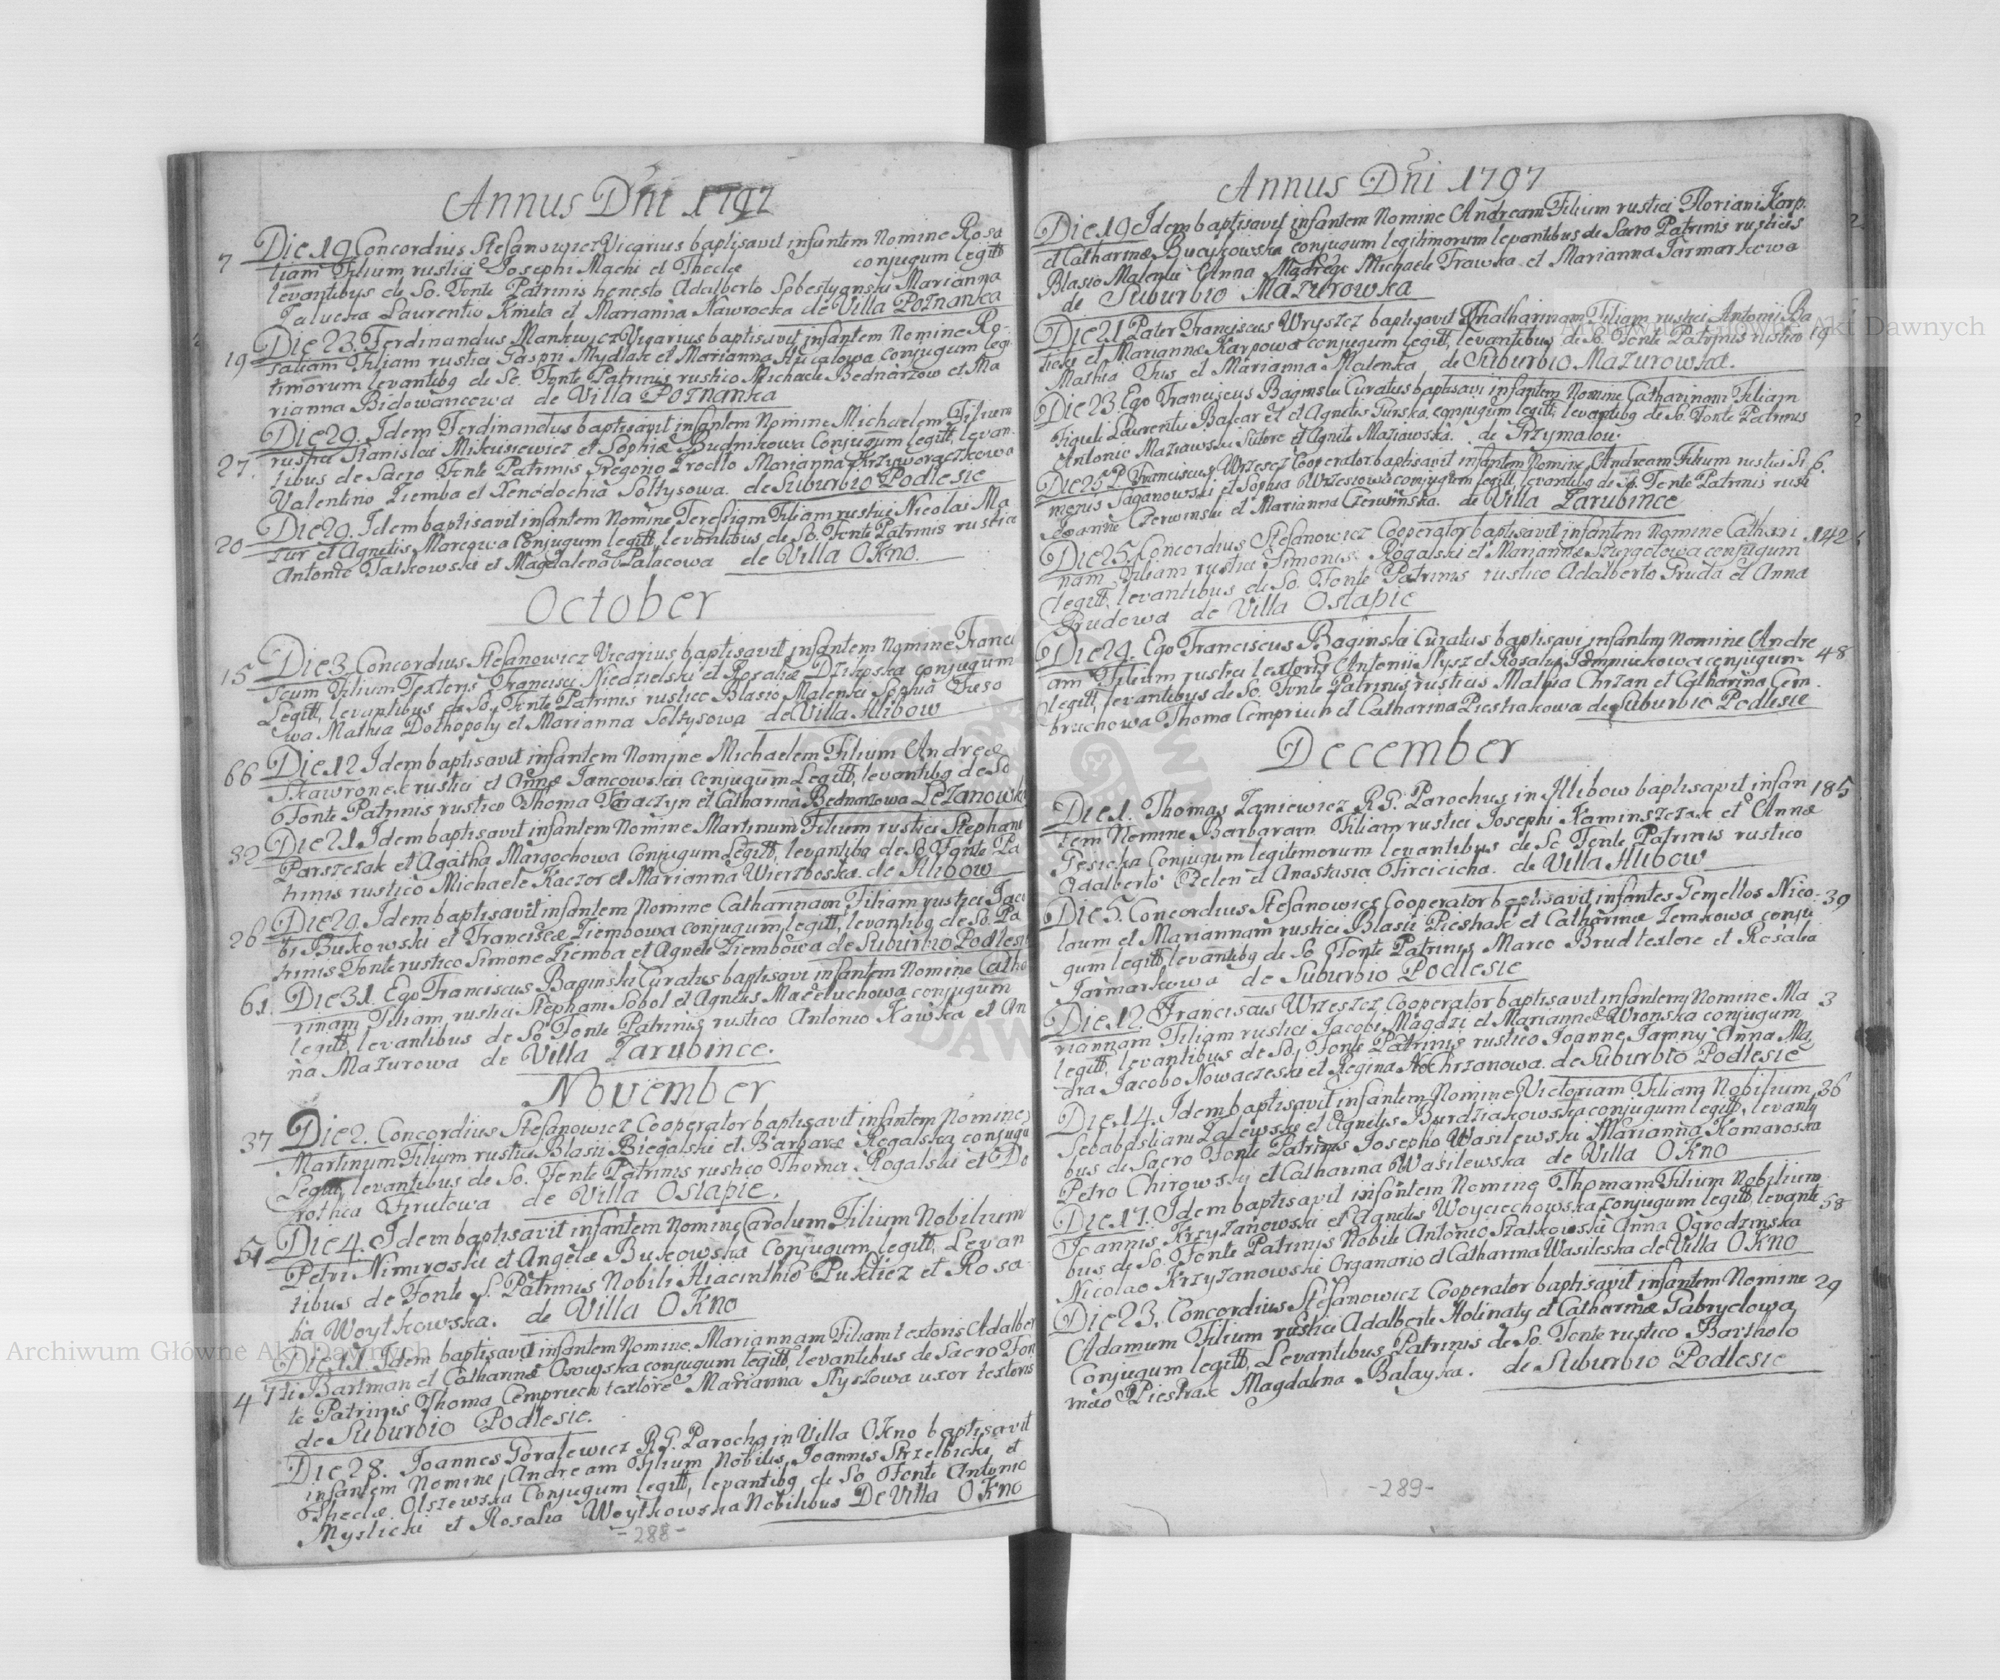 Annus Dni 1797
7 Die 19 Concordius Stefanowicz Vicarius baptisavit infantem Nomine Rosa
liam Filium rustici Josephi Machi et Theclæ conjugum legitt
levantibus de So. Fonte Patrinis honesto Adalberto Sobestyanski Marianna
Laurentio Kmita et Marianna Nawrocka de Villa Poznanka
19 Die 23 Ferdinandus Mankwicz Vicarius baptisavit infantem Nomine Ro-
saliam Filiam rustici Gaspri Mydlak et Marianna Hucalowa conjugum legi
timorum levantibq de Sc. Fonte Patrinis rustico Michaele Bednarzow et Ma
rianna Bidowancowa de Villa Poznanka
27. Die 29. Idem Ferdinandus baptisavit infantem Nomine Michaelem Filium
rustici Stanislai Mikusiewicz et Sophiæ Budnikowa Conjugum Legitt, levan-
tibus de Sacro Fonte Patrinis Gregorio Marianna Krzyworączkowa
Valentino Ziemba et Xenodochia Soltysowa. de Suburbio Podlesie
20 Die 29. Idem baptisavit infantem Nomine Teressiam Filiam rustici Nicolai Ma
zur et Agnetis Marcowa Conjugum legitt, levantibus de So. Fonte Patrinis rustico
Antonio Talkowski et Magdalena Palacowa de Villa Okno.
October
15 Die 3. Concordius Stefanowicz Vicarius baptisavit infantem Nomine Franci
scum Filium Textoris Francisci Niedzielski et Rosaliæ conjugum
Legitt, levantibus de So. Fonte Patrinis rustico Blasio Malenki Sophia
wa Mathia Dolhopoly et Marianna Soltysowa de Villa Hlibow
66 Die 12 Idem baptisavit infantem Nomine Michaelem Filium Andreæ
Skawronek rustici et Annæ Jancowska conjugum Legitt, levantibq de So
Fonte Patrinis rustico Thoma Taraczyn et Catharina Bednarzowa Lezanowk
32 Die 21 Idem baptisavit infantem Nomine Martinum Filium rustici Stephani
Parszczak et Agatha Margochowa Conjugum Legitt, levantibq de So. Fonte Pa
trinis rustico Michaele Kaczor et Marianna Wierzboska. de Hlibow
26 Die 29. Idem baptisavit infantem Nomine Catharinam Filiam rustici Jaco
bi Bukowski et Franciscæ Ziembowa conjugum, legitt, levantibq de So. Pa
trinis Fonte rustico Simone Ziemba et Agnete Ziembowa de Suburbio Podlesi
61. Die 31. Ego Franciscus Baginski Curatus baptisavi infantem Nomine Catha
rinam Filiam, rustici Stephani Sobol et Agnetis conjugum
legitt, levantibus de So. Fonte Patrinis rustico Antonio Kawska et An
na Mazurowa de Villa Zarubince.
November
37 Die 2. Concordius Stefanowicz Cooperator baptisavit infantem Nomine
Martinum Filium rustici Blasii Biegalski et Barbaræ Regalska conjugu
Legitt, levantibus de So. Fonte Patrinis rustico Thoma Rogalski et Do
rothea Firutowa de Villa Oslapie.
51 Die 4. Idem baptisavit infantem nomine Carolum Filium Nobilium
Petri Nimiroski et Angelæ Bukowska Conjugum legitt, Levan
tibus de Fonte S. Patrinis Nobili Hiacinthio et Rosa-
lia Woytkowska. de Villa Okno
47 Die 11 Idem baptisavit infantem Nomine Mariannam Filiam textoris Adalber
ti Bartman et Catharinæ Osowska conjugum legitt, levantibus de Sacro Fon
te Patrinis Thoma Cempruch textore Marianna Slyszowa uxor textoris
de Suburbio Podlesie.
Die 28. Joannes Goralewicz R.G. Parochq in Villa Okno baptisavit
infantem Nomine Andream Filium Nobilis Joannis Strzelbicki et
Theclæ Olszewska Conjugum legitt, levantibq de So. Fonte Antonio
Myslicki et Rosalia Woytkowska Nobilibus De Villa Okno
-288-
Annus Dni 1797
Die 19 Idem baptisavit infantem Nomine Andream Filium rustici Floriani Karp
et Catharinæ Bucykowska conjugum legitimorum levantibus de Sacro Patrinis rusticis
Blasio Malenki Anna Michaele Trawka et Marianna Jarmarkowa
de Suburbio Mazurowka
Die 21 Pater Franciscus Wryszcz baptisavit Khatharinam Filiam rustici Antonii Ba 19
et Mariannæ Karpowa conjugum legitt, levantibus de So. Fonte Patrinis rustico
Mathia Fus et Marianna Malenka de Suburbio Mazurowka.
Die 23 Ego Franciscus Baginski Curatus baptisavi infantem Nomine Catharinam Filiam
Figuli Laurentii et Agnetis Gurska, conjugum legitt, levantibq de So. Fonte Patrinis
Antonio Maziawski Sutore et Agnete Maziawska. de Grzymalow.
Die 25 P. Franciscus Wrzescz Cooperator baptisavit infantem Nomine Andream Filium rustici Si 6.
meonis Saganowski et Sophia Wrzesiowa conjugum legitt, levantibq de So. Fonte Patrinis rusti
Joanne Czerwinski et Marianna Czerwinska. de Villa Zarubince
Die 25 Concordius Stefanowicz Cooperator baptisavit infantem Nomine Cathari 142
nam Filiam rustici Simonis Rogalski et Mariannæ conjugum
legitt, levantibus de So. Fonte Patrinis rustico Adalberto Gruda et Anna
Grudowa de Villa Oslapie
Die 29. Ego Franciscus Baginski Curatus baptisavi infantem Nomine Andre 48
am Filium rustici textoris Antonii Slysz et Rosalia conjugum-
legitt, levantibus de So. Fonte Patrinis rusticis Mathia Chrzan et Catharina Cem-
bruchowa Thoma Cempruch et Catharina Piestrakowa de Suburbio Podlesie
December
Die 1. Thomas Zaniewicz R.G. Parochus in Hlibow baptisavit infan 185
tem Nomine Barbaram Filiam rustici Josephi Kaminszczak et Annæ
Gesicka Conjugum legitimorum levantibus de Sc. Fonte Patrinis rustico
Adalberto Zielen et Anastasia de Villa Hlibow
Die 5. Concordius Stefanowicz Cooperator baptisavit infantes Gemellos Nico- 39
laum et Mariannam rustici Blasii Piestrak et Catharinæ Zemkowa conju
gum legitt, levantibq de So. Fonte Patrinis Marco Brud textore et Rosalia
Jarmarkowa de Suburbio Podlesie
Die 12 Franciscus Wrzeszcz Cooperator baptisavit infantem Nomine Ma 3
riannam Filiam rustici Jacobi Magdzi et Mariannæ Wronska conjugum
legitt, levantibus de So. Fonte Patrinis rustico Joanne Jamny Anna Mą
dra Jacobo Nowaczeski et Regina Chrzanowa. de Suburbio Podlesie
Die 14. Idem baptisavit infantem Nomine Victoriam Filiam Nobilium 36
Sebabstiani Zalewski et Agnetis Burdziakowska conjugum legitt, levanti
bus de Sacro Fonte Patrinis Josepho Wasilewski Marianna Komaroska
Petro Chirowsky et Catharina Wasilewska de Villa Okno
Die 17. Idem baptisavit infantem Nomine Thomam Filium Nobilium
Joannis Krzyzanowski et Agnetis Woyciechowska conjugum legitt, levanti 58
bus de So. Fonte Patrinis Nobili Antonio Szatkowski Anna Ogrodzinska
Nicolao Krzyzanowski Organario et Catharina Wasileska de Villa Okno
Die 23. Concordius Stefanowicz Cooperator baptisavit infantem Nomine 29
Adamum Filium rustici Adalberti Holinaty et Catharinæ Gabryelowa
Conjugum legitt, Levantibus Patrinis de So. Fonte rustico Bartholo
mæo Piestrak Magdalena Balayka. de Suburbio Podlesie
-289-
Archiwum Główne Akt Dawnych
Archiwum Główne Akt Dawnych